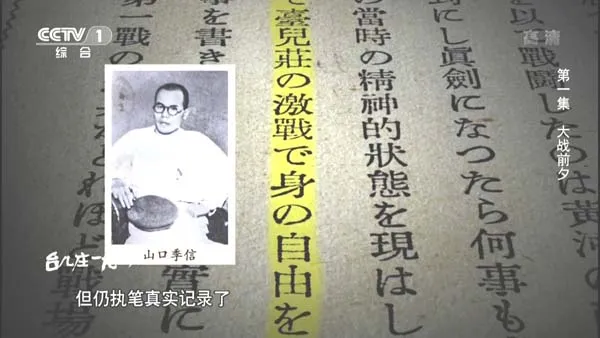 CCTV 1
综合
高清
第一集 大战前夕
以て戰鬪したのは黄河の
にし眞劍になつたら何事も
の當時の精神的狀態を現はし
て臺兒莊の激戰で身の自由を
を書き
實に
第一戰の
れほど戰場
山口季信
台儿庄一
但仍执笔真实记录了